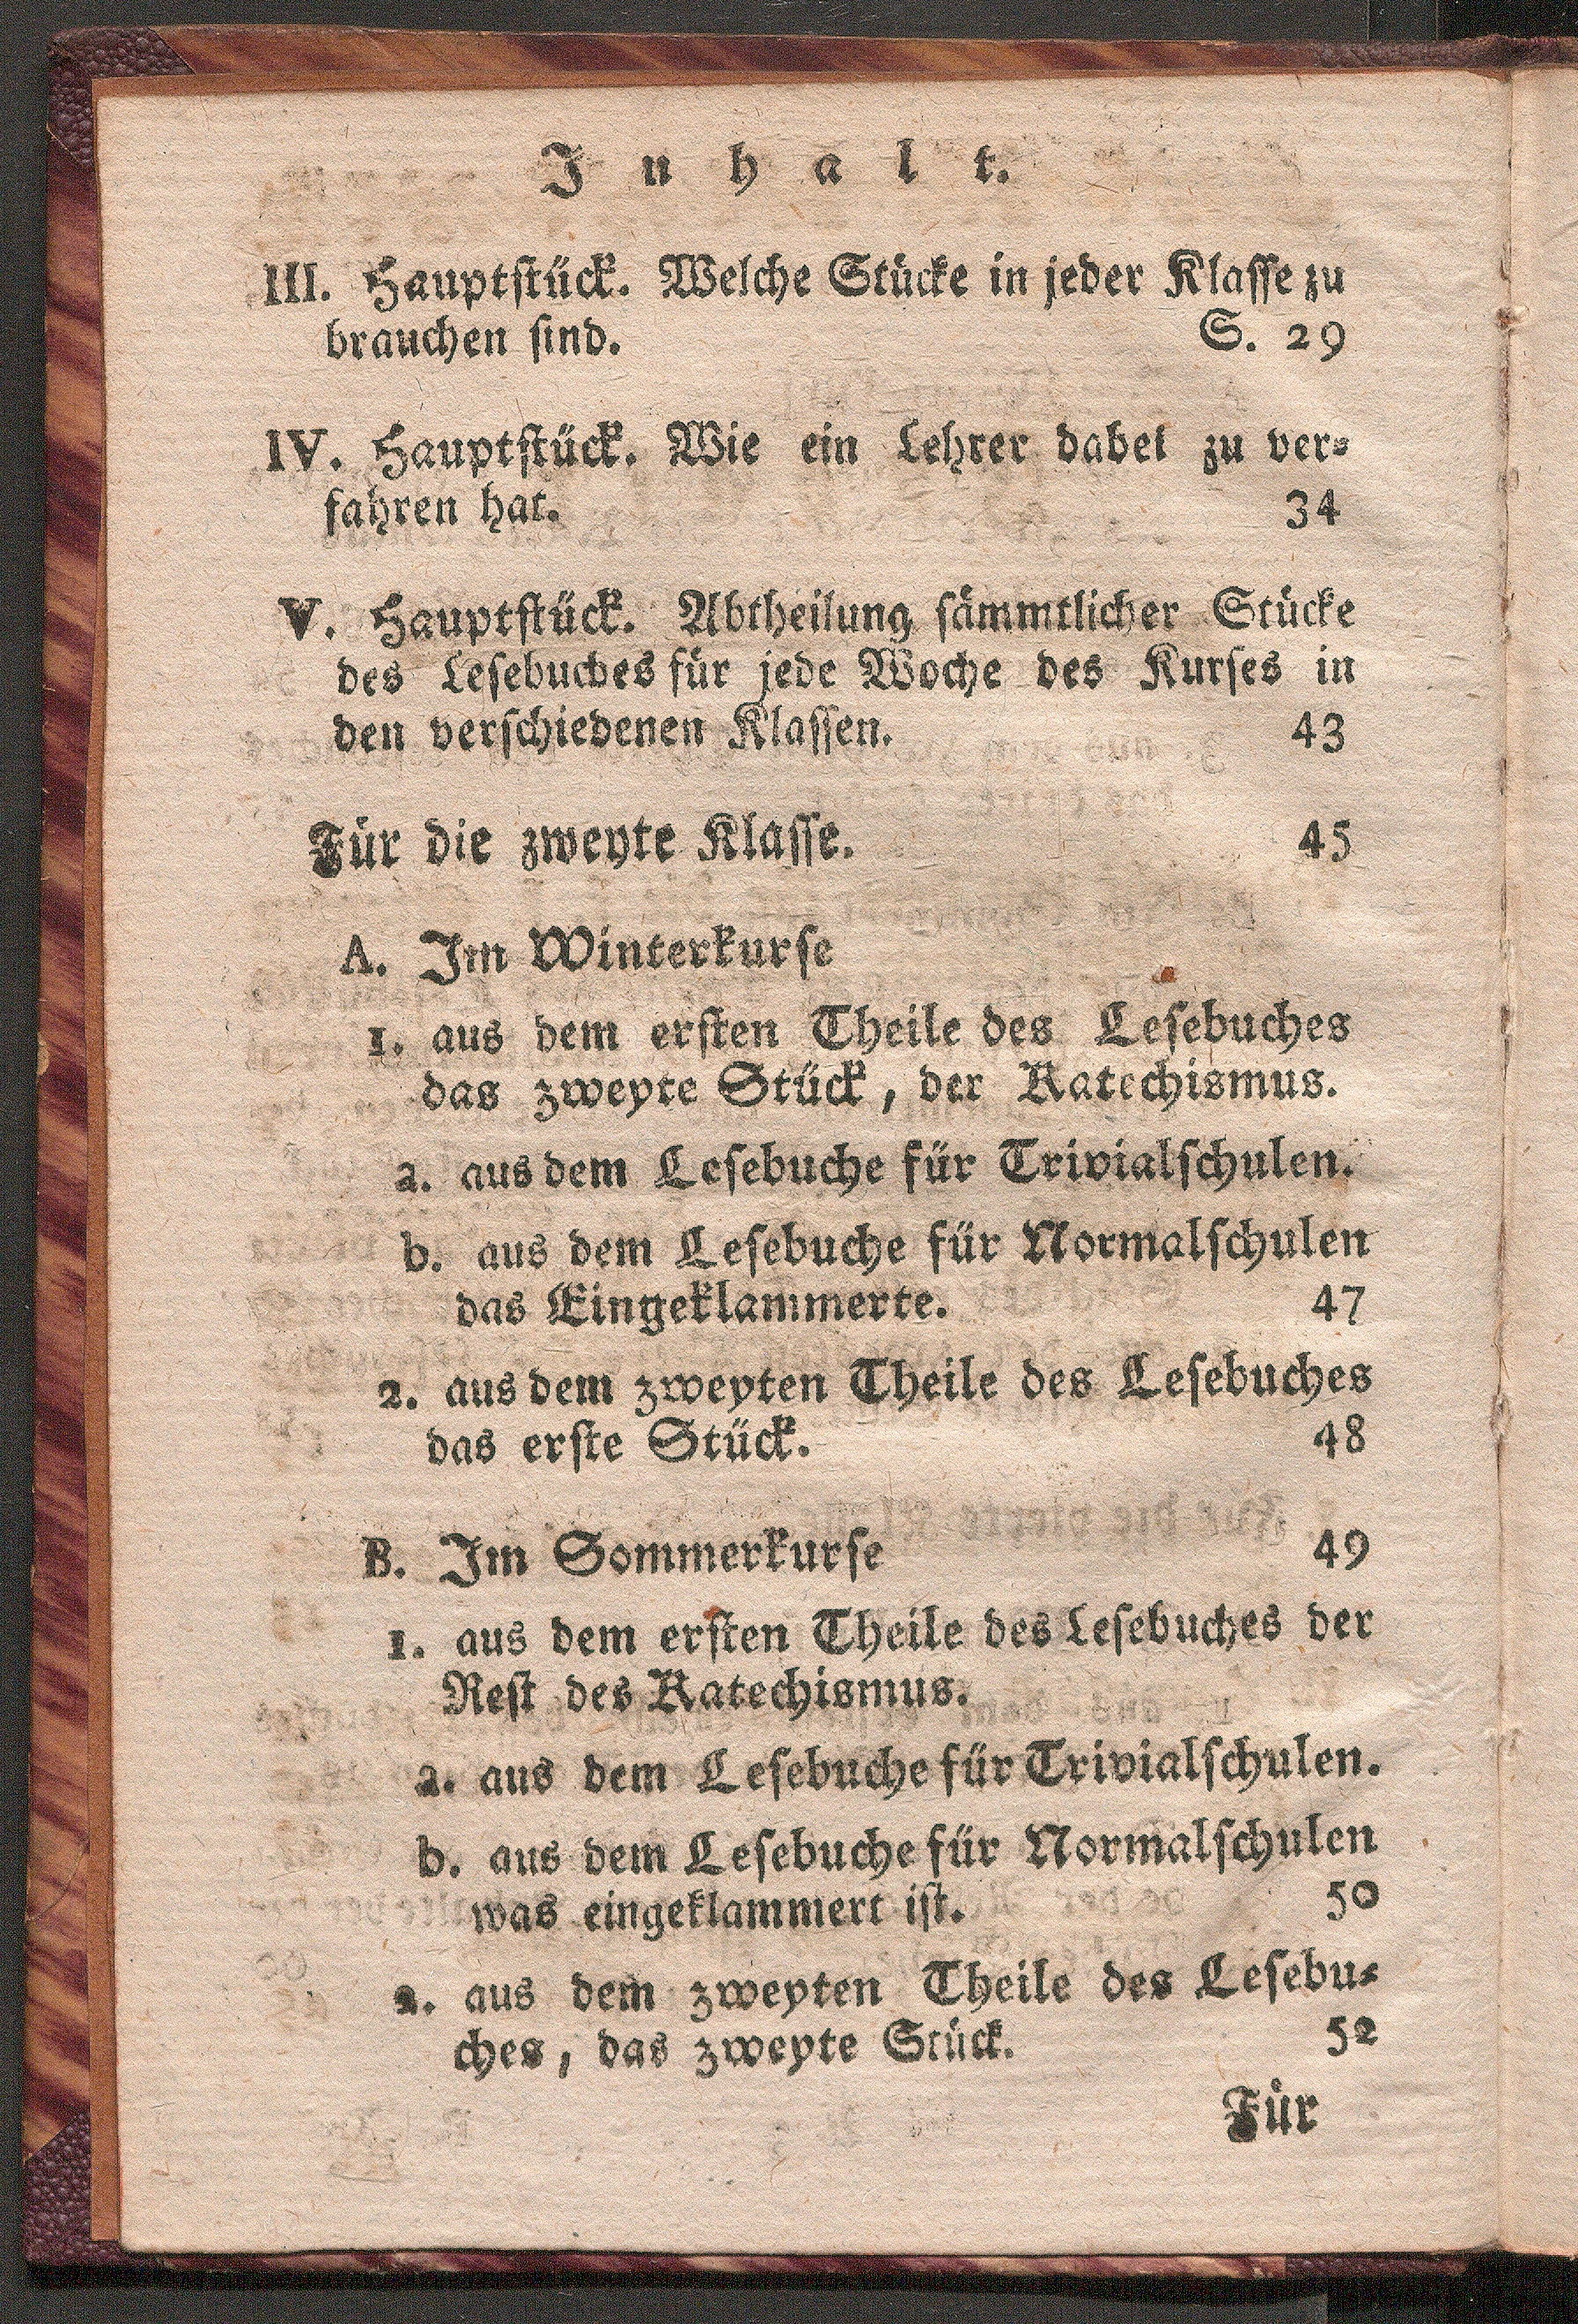 Inhalt.
III. Hauptstück. Welche Stücke in jeder Klasse zu
brauchen sind. S. 29
IV. Hauptstück. Wie ein Lehrer dabei zu ver-
fahren hat. 34
V. Hauptstück. Abtheilung sämmtlicher Stücke
des Lesebuches für jede Woche des Kurses in
den verschiedenen Klassen. 43
Für die zweyte Klasse. 45
A. Im Winterkurse
1. aus dem ersten Theile des Lesebuches
das zweyte Stück, der Katechismus.
a. aus dem Lesebuche für Trivialschulen.
b. aus dem Lesebuche für Normalschulen
das Eingeklammerte. 47
2. aus dem zweyten Theile des Lesebuches
das erste Stück. 48
B. Im Sommerkurse 49
1. aus dem ersten Theile des Lesebuches der
Rest des Katechismus.
a. aus dem Lesebuche für Trivialschulen.
b. aus dem Lesebuche für Normalschulen
was eingeklammert ist. 50
2. aus dem zweyten Theile des Lesebu-
ches, das zweyte Stück. 52
Für